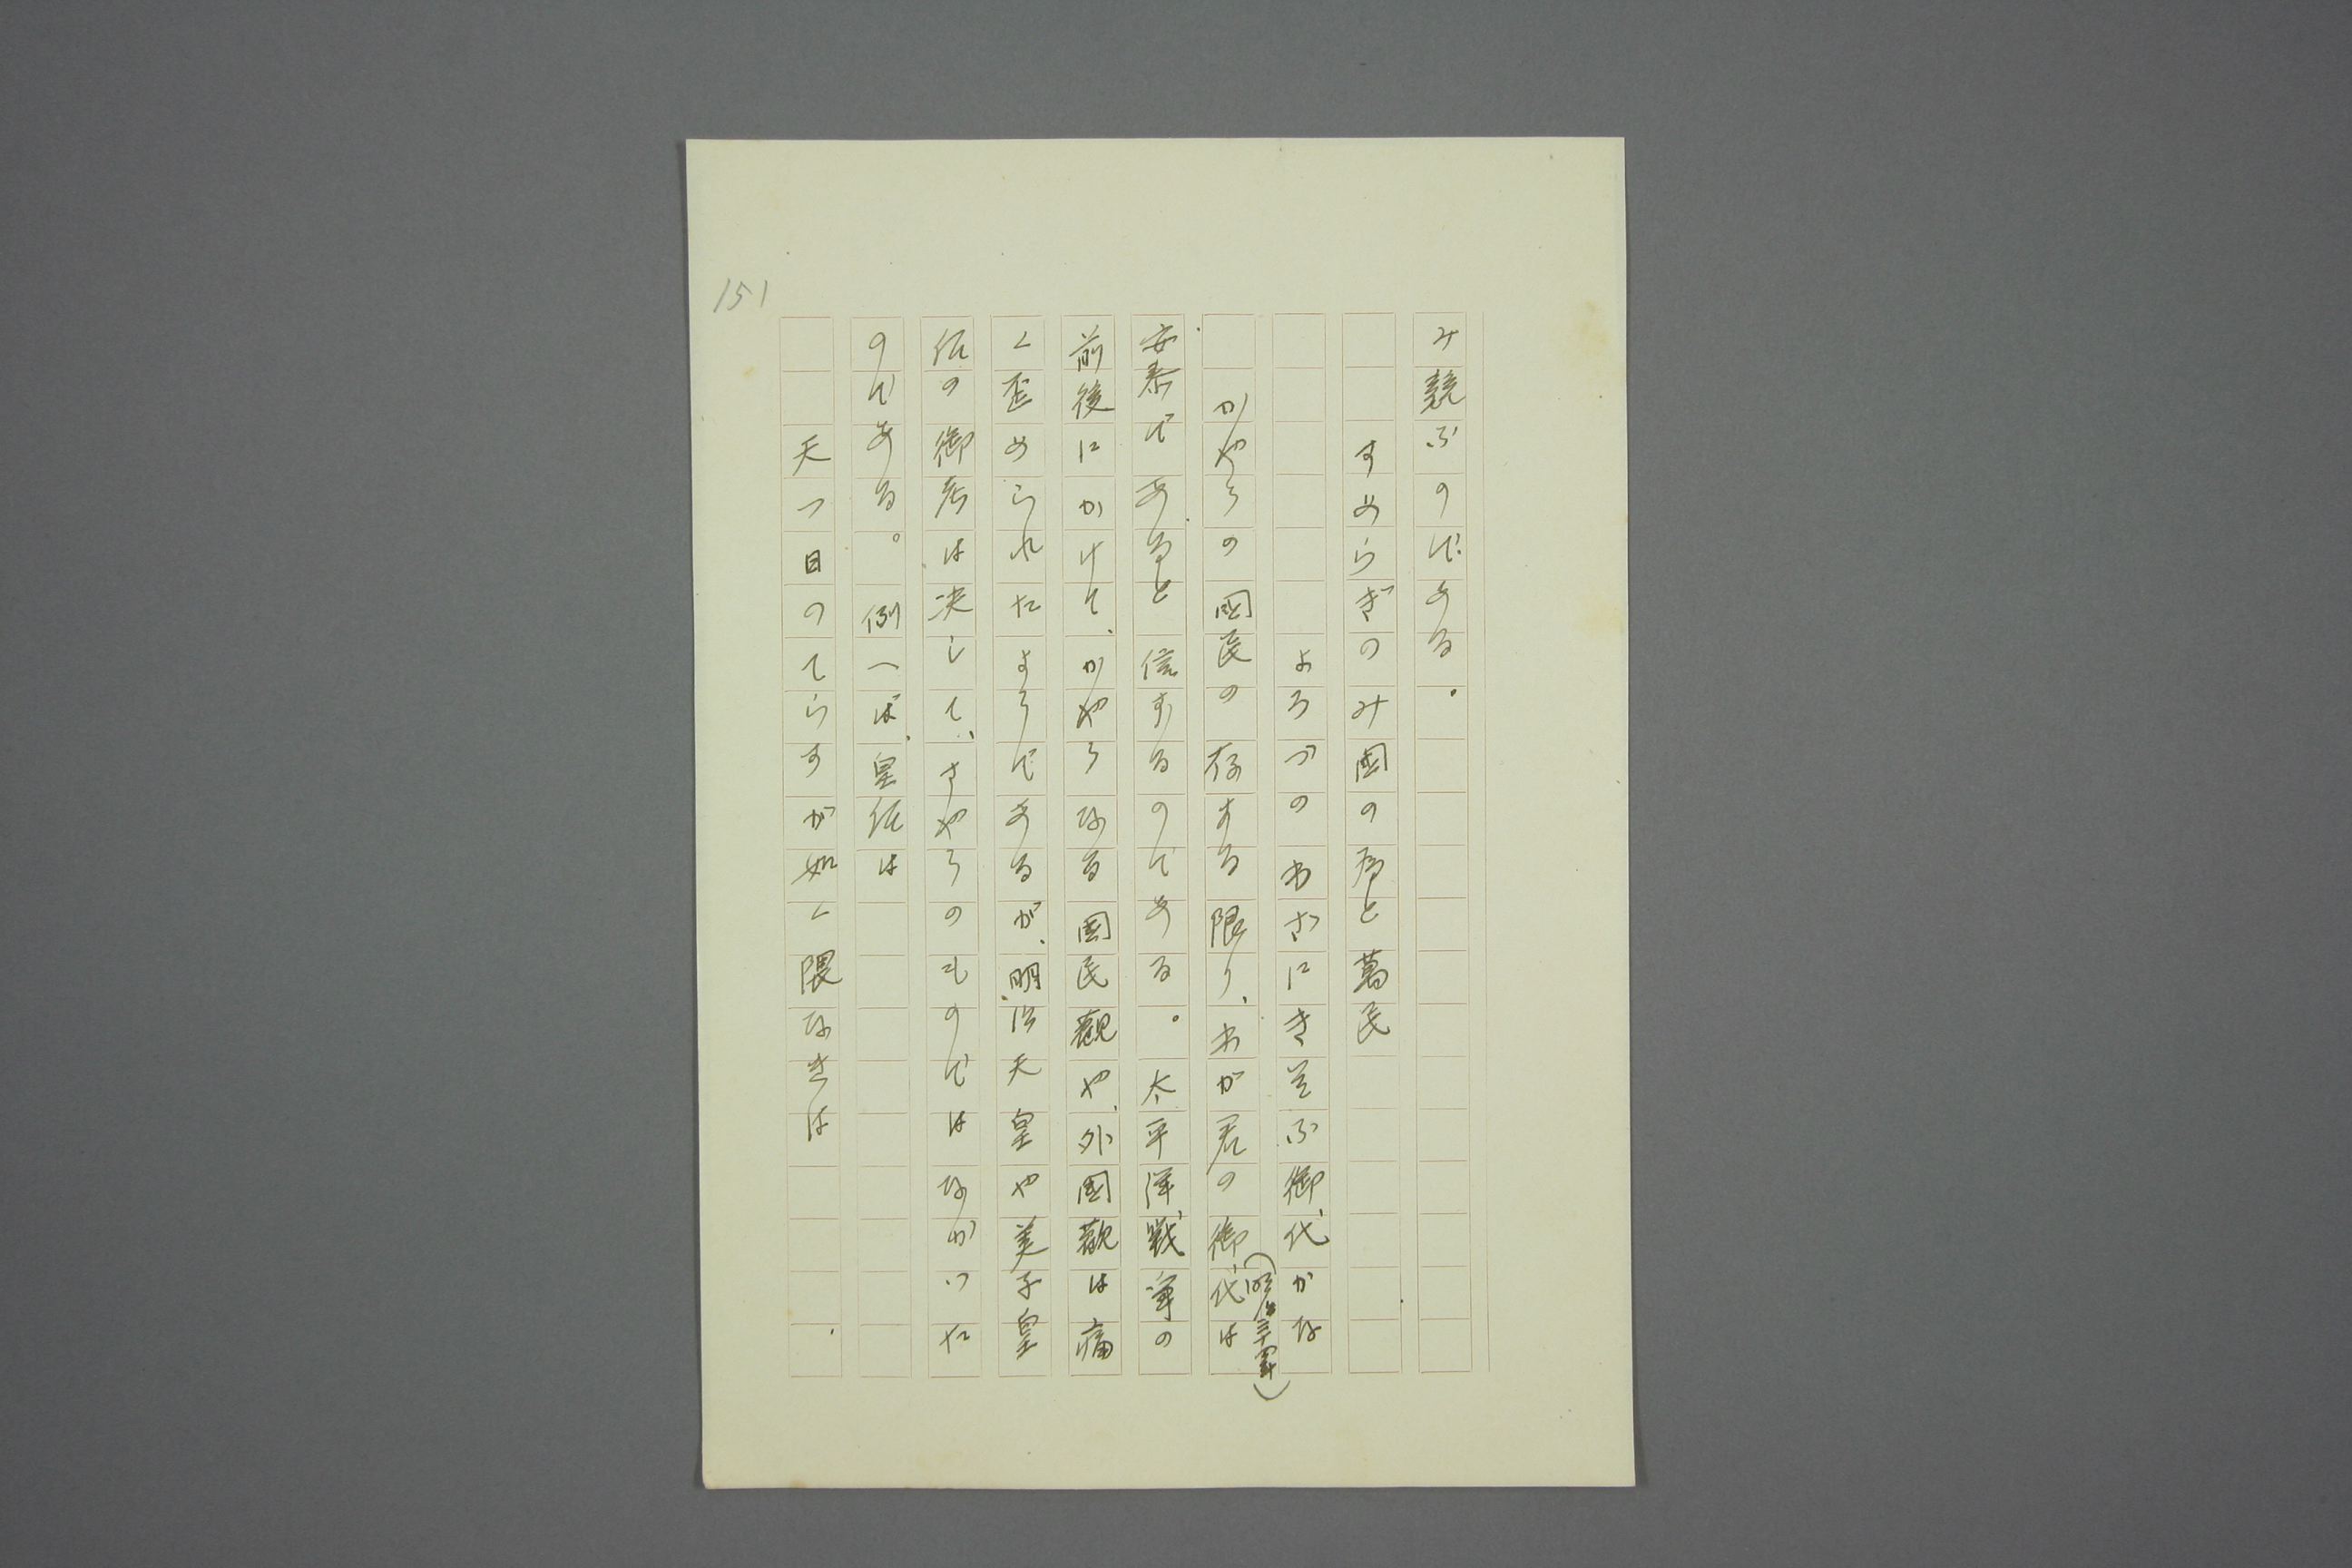 み競ぶのである。
すめらぎのみ国の為と萬民
よろづのわざにきそふ御代かな
(明治三十四年)
かやうの国民の存する限り、わが君の御代は
安泰であると信ずるのである。太平洋戦争の
前後にかけて、かやうなる国民観や、外国観は痛
く歪められたようであるが、明治天皇や美子皇
后の御考は決して、さやうのものではなかった
のである。例へば、皇后は
天つ日のてらすが如く隈なきは
151